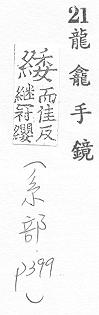 21 龍龕手鏡
緌 而隹反
継冠纓
(糸部 p399)